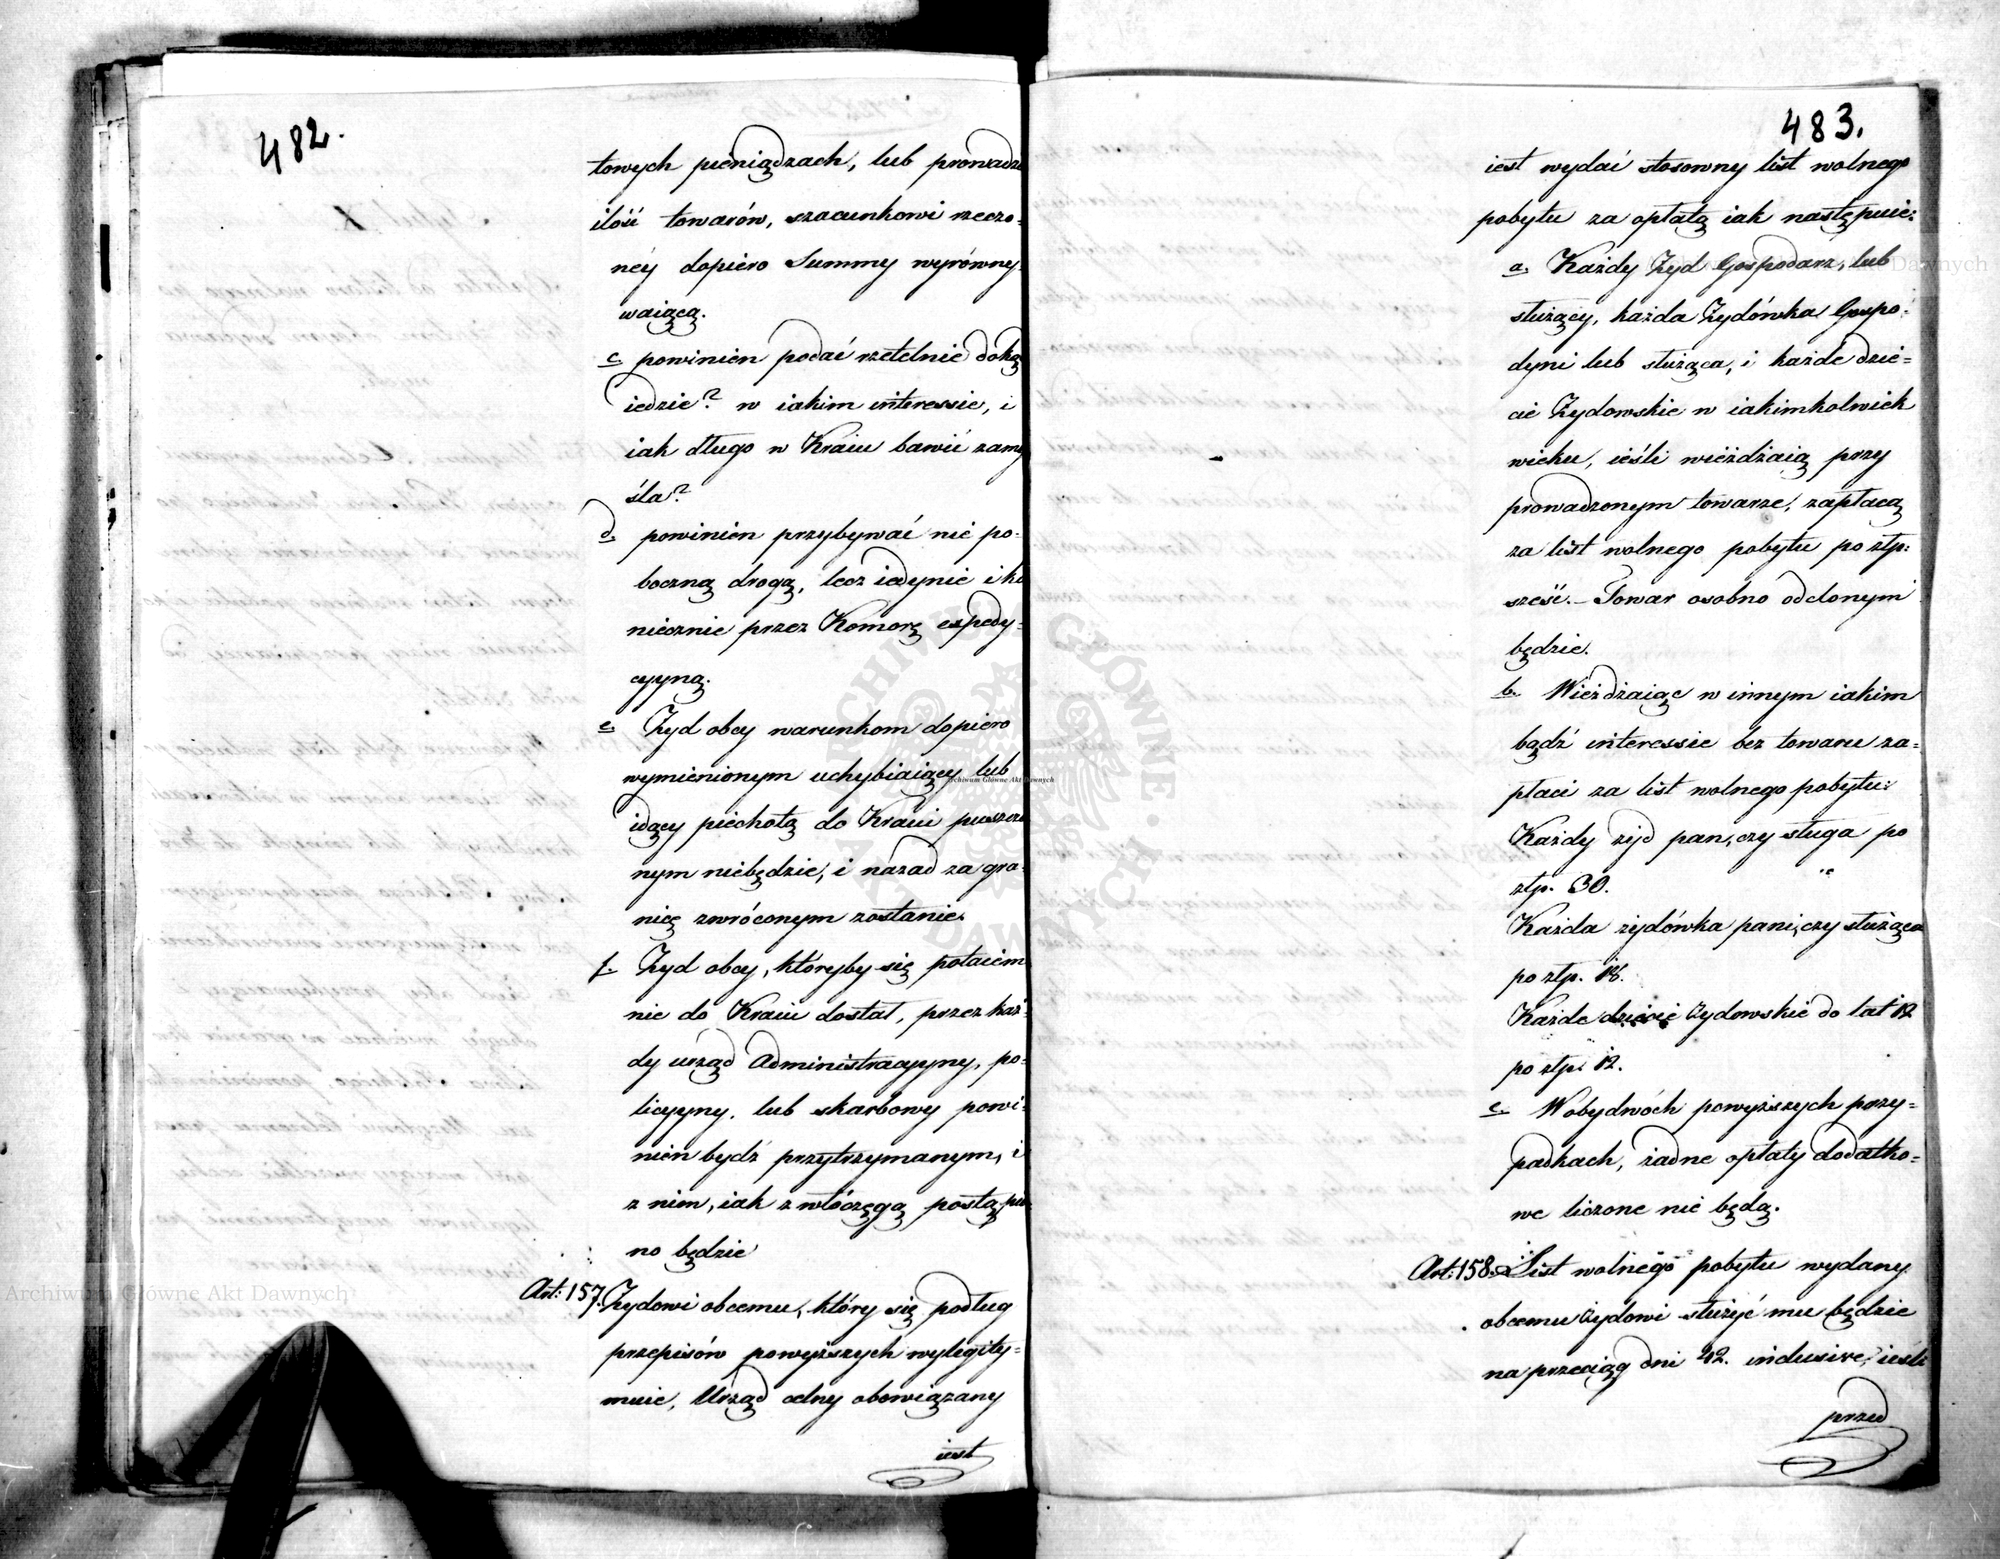 482.
towych pieniądzach, lub prowadzi
ilość towarów, szacunkowi rzeczo-
néy dopiero Summy wyrówny-
waiącą.
c. powinien podać rzetelnie doką
iedzie? w iakim interessie, i
iak długo w Kraiu bawić zamy
śla?
d. powinien przybywać nie po-
boczną drogą, lecz iedynie i ko
niecznie przez Komorę expedy-
cyyną.
e. Żyd obcy warunkom dopiero
wymienionym uchybiaiący lub
idący piechotą do Kraiu puszczo
nym niebędzie, i nazad za gra-
nicę zwróconym zostanie.
f. Żyd obcy, któryby się potaiem
nie do Kraiu dostał, przez każ-
dy urząd Administracyyny, po-
licyyny, lub skarbowy powi-
nien bydź przytrzymanym, i
z nim, iak z włóczęgą, postąpio
no będzie
Art: 157. Żydowi obcemu, który się podług
przepisów powyższych wylegity-
muie, Urząd celny obowiązany
iest
483.
iest wydać stosowny list wolnego
pobytu za opłatą iak następuie:
a. Każdy Żyd Gospodarz, lub
służący, każda Żydówka Gospo-
dyni lub służąca, i każde dzie-
cie Żydowskie w iakimkolwiek
wieku, ieśli wieżdżaią przy
prowadzonym towarze, zapłacą
za list wolnego pobytu po złp:
sześć. – Towar osobno odclonym
będzie.
b. Wieżdżaiąc w innym iakim
bądź interessie bez towaru za-
płaci za list wolnego pobytu:
Każdy żyd pan, czy sługa po
złp. 30.
Każda żydówka pani, czy służąca
po złp. 18.
Każde dziecie Żydowskie do lat 12
po złp. 12.
c. W obydwóch powyższych przy-
padkach, żadne opłaty dodatko-
we liczone nie będą.
Art: 158. List wolnego pobytu wydany
obcemu Żydowi służyć mu będzie
na przeciąg dni 42. inclusive, ieśli
przed
Archiwum Główne Akt Dawnych
ARCHIWUM GŁÓWNE AKT DAWNYCH
Archiwum Główne Akt Dawnych